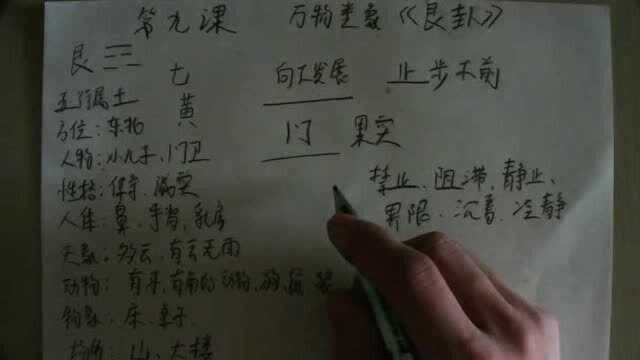 第九课 万物类象《艮卦》
艮 ☶ 七 向下发展 止步不前
五行属土 黄
方位:东北 门 果实
人物:小儿子、门卫
禁止、阻滞、静止、
性格:保守、诚实
界限、沉着、冷静
人体:鼻、手背、乳房
天象:多云,有云无雨
动物:有牙,有角的动物,狗、鼠
物象:床、桌子
山、大楼